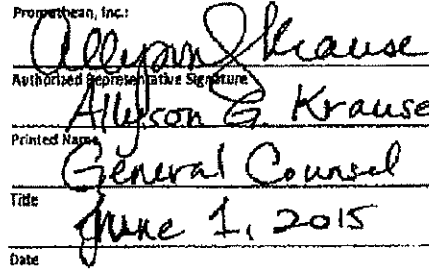 Promethean, Inc.:
Allyson G Krause
Authorized Representative Signature
Allyson G Krause
Printed Name
General Counsel
Title
June 1, 2015
Date